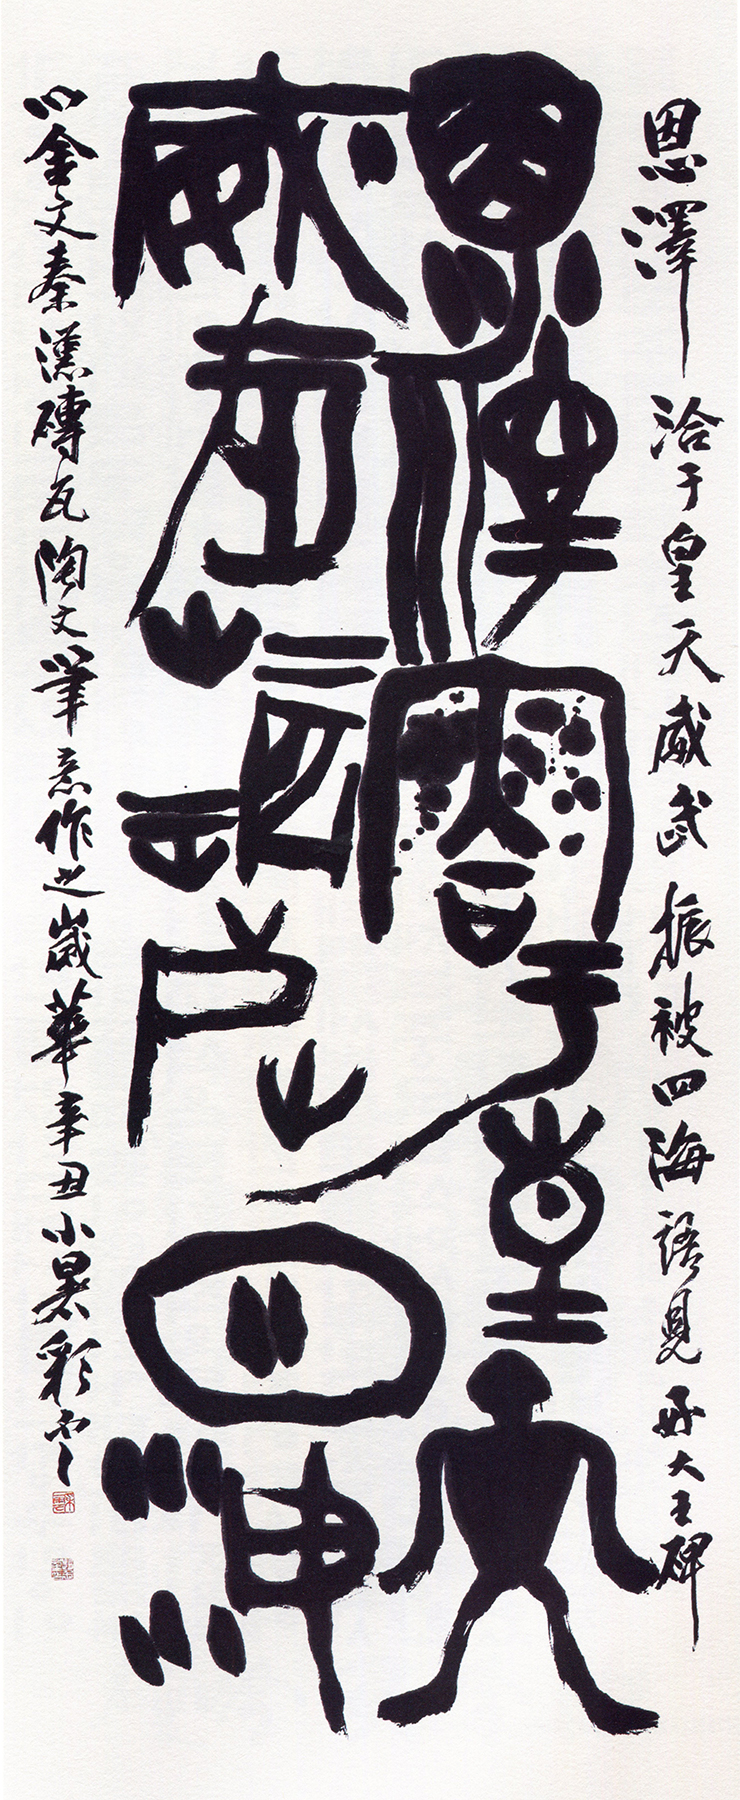 恩澤洽于皇天威武振被四海語見好大王碑
恩澤洽于皇天
威武振被四海
以金文秦漢磚瓦陶文筆意作之歲華辛丑小暑彩雲